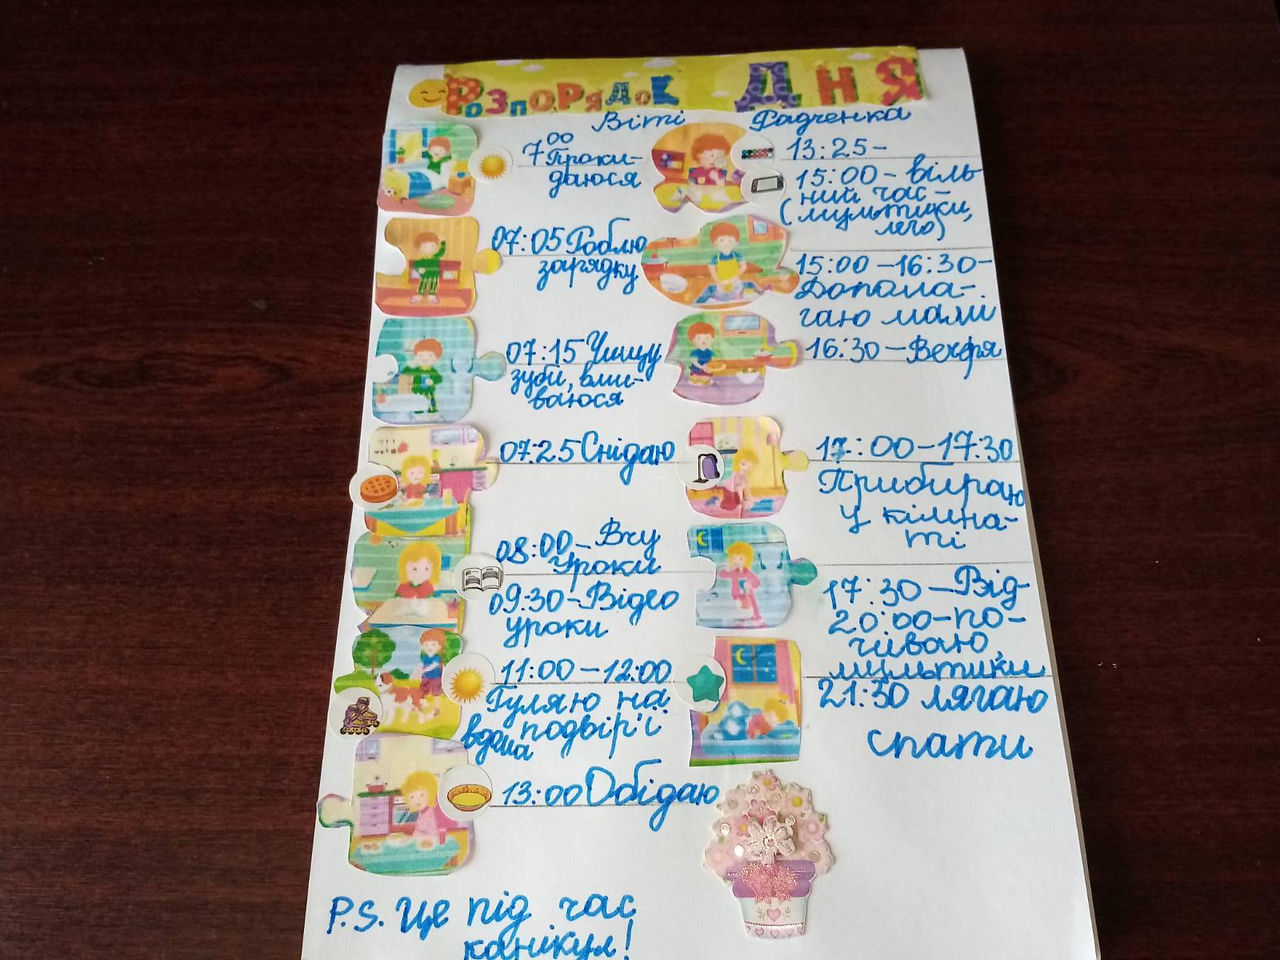 Розпорядок Дня
Віті Фадченка
7 00
Проки-
даюся
07:05 Роблю
зарядку
07:15 Чищу
зуби, вми-
ваюся
07:25 Снідаю
08:00 – Вчу
уроки
09:30 – Відео
уроки
11:00 – 12:00
Гуляю на
подвір'ї
вдома
13:00 Обідаю
13:25 –
15:00 – віль-
ний час –
(мультики,
лего)
15:00 – 16:30 –
Допома-
гаю мамі
16:30 – Вечеря
17:00 – 17:30
Прибираю
у кімна-
ті
17:30 – Від-
20:00 – по-
чиваю,
мультики
21:30 лягаю
спати
P.S. Це під час
канікул!